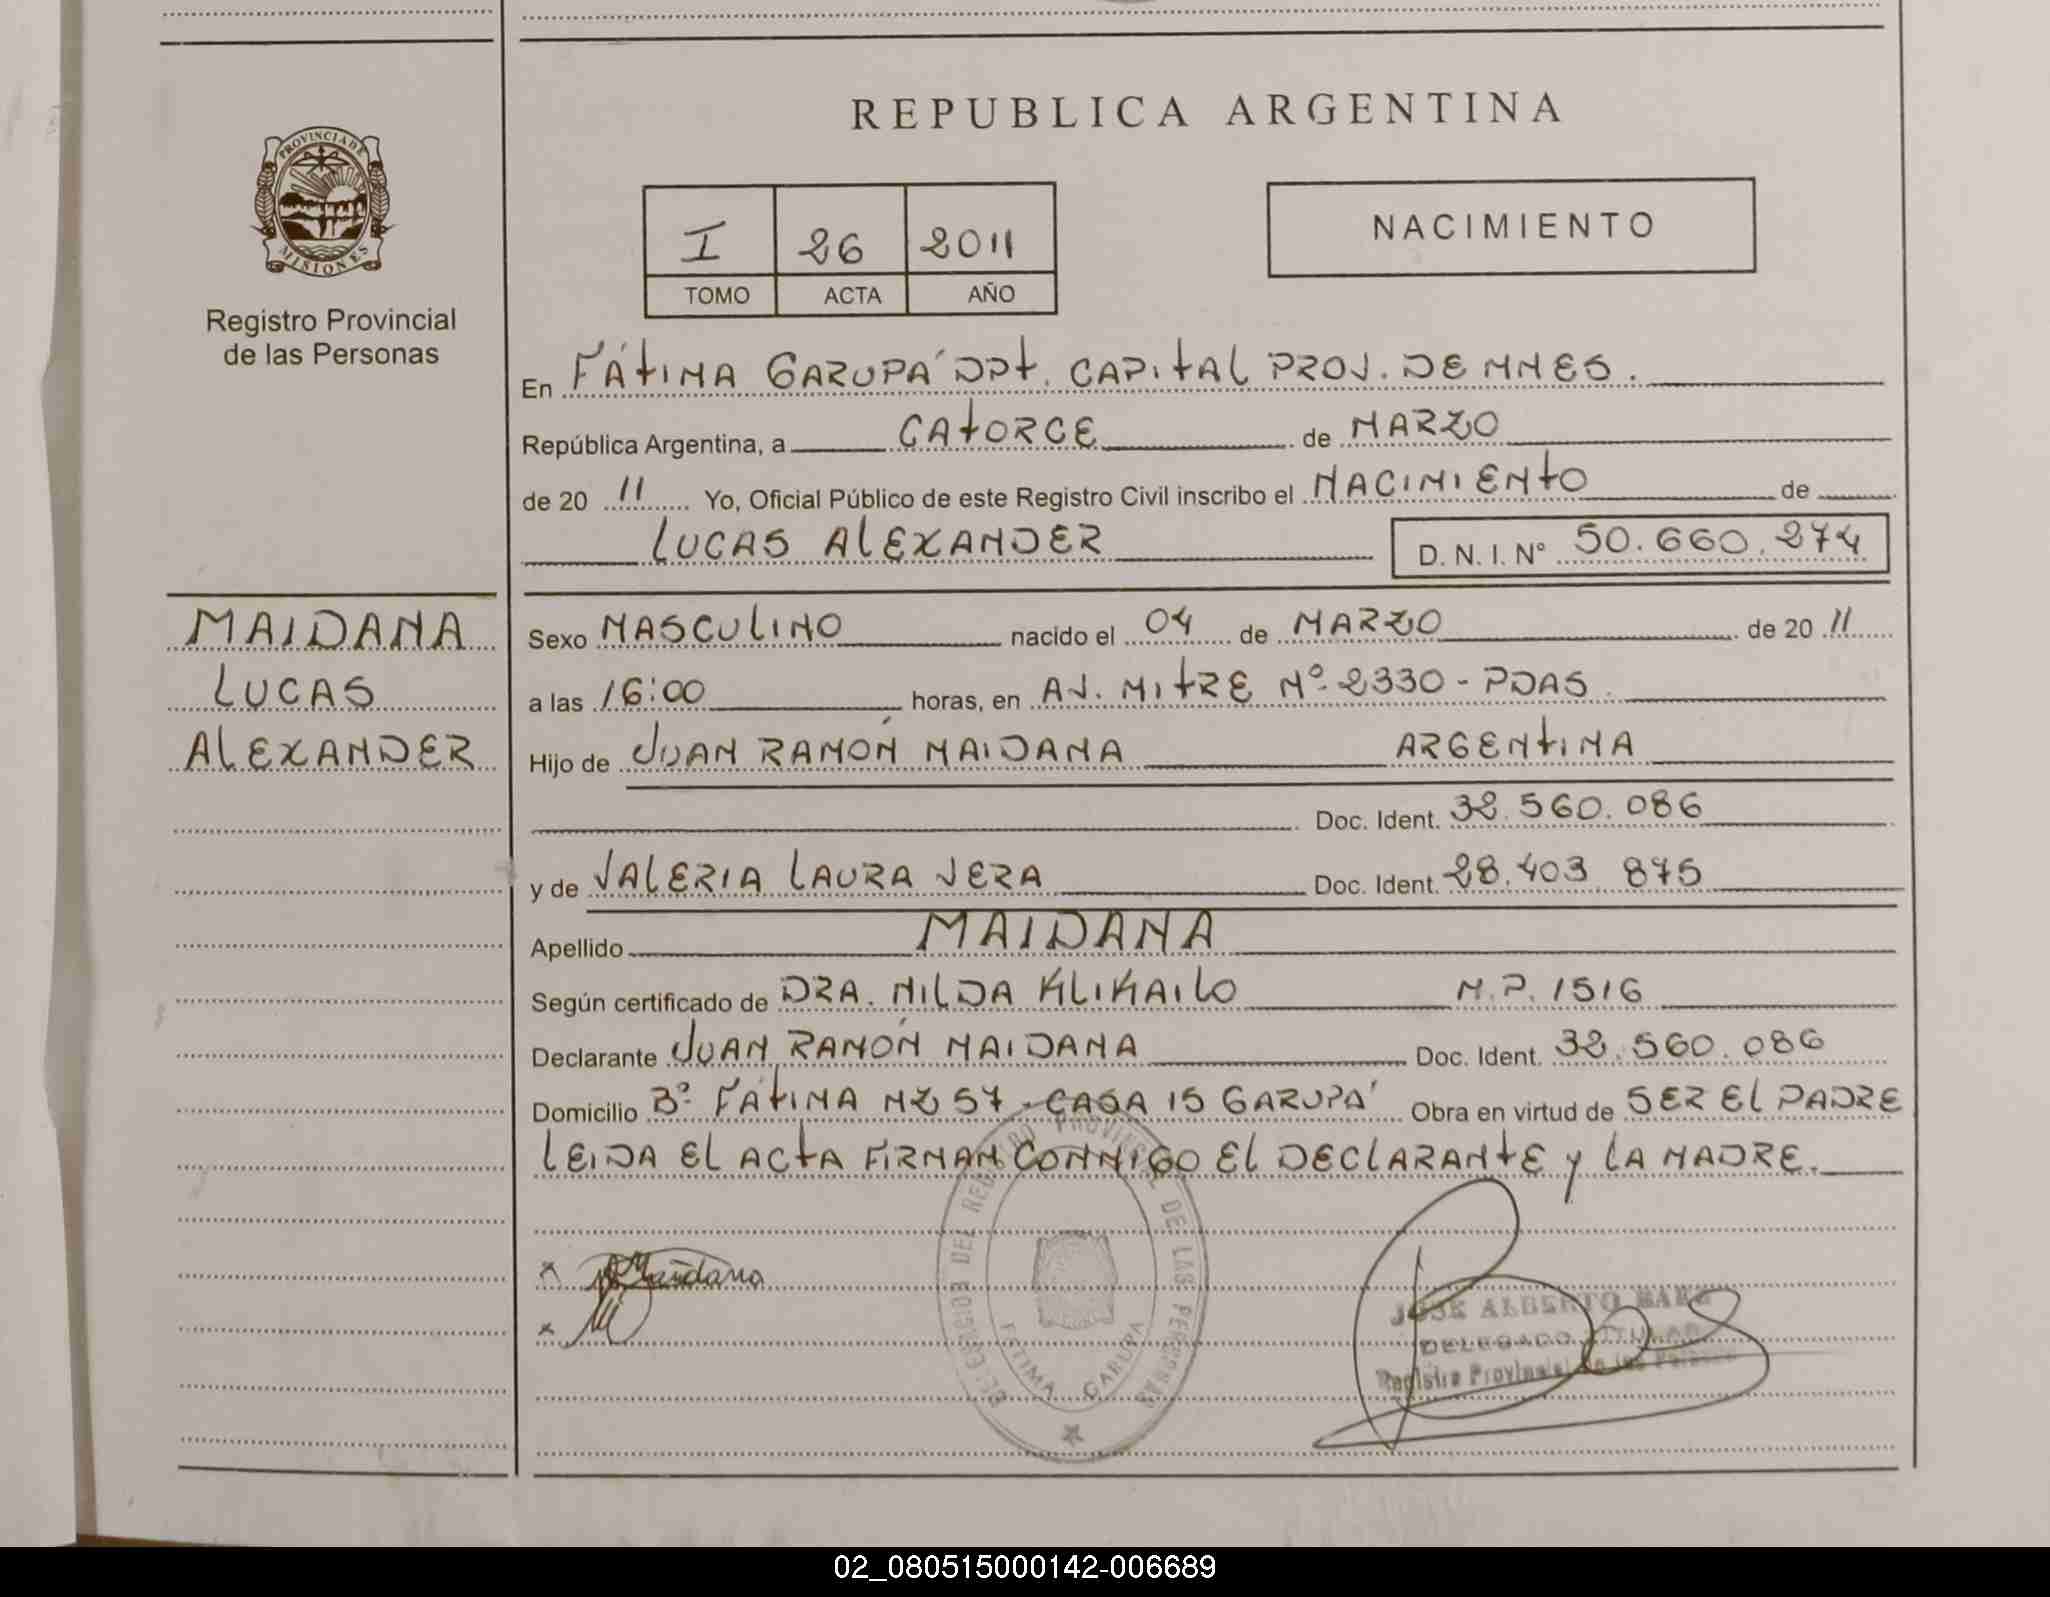 REPUBLICA ARGENTINA
PROVINCIA DE MISIONES
Registro Provincial
de las Personas
I 26 2011
TOMO ACTA AÑO
NACIMIENTO
En FÁTIMA GARUPÁ DPT. CAPITAL PROV. DE MNES.
República Argentina, a CATORCE de MARZO
de 20 11 Yo, Oficial Público de este Registro Civil inscribo el NACIMIENTO de
LUCAS ALEXANDER D. N. I. N° 50.660.274
MAIDANA
LUCAS
ALEXANDER
Sexo MASCULINO nacido el 04 de MARZO de 20 11
a las 16:00 horas, en AV. MITRE Nº 2330 - PDAS.
Hijo de JUAN RAMÓN MAIDANA ARGENTINA
Doc. Ident. 32.560.086
y de VALERIA LAURA VERA Doc. Ident. 28.403 875
Apellido MAIDANA
Según certificado de DRA. NILDA KLIKAILO M.P. 1516
Declarante JUAN RAMÓN MAIDANA Doc. Ident. 32.560.086
Domicilio Bº FÁTIMA MZ 57 - CASA 15 GARUPÁ Obra en virtud de SER EL PADRE
LEIDA EL ACTA FIRMAN CONMIGO EL DECLARANTE Y LA MADRE.
x Maidana
x
DELEGACION DEL REGISTRO PROVINCIAL DE LAS PERSONAS
FATIMA GARUPA
JOSE ALBERTO BAEZ
DELEGADO TITULAR
Registro Provincial de las Personas
02_080515000142-006689